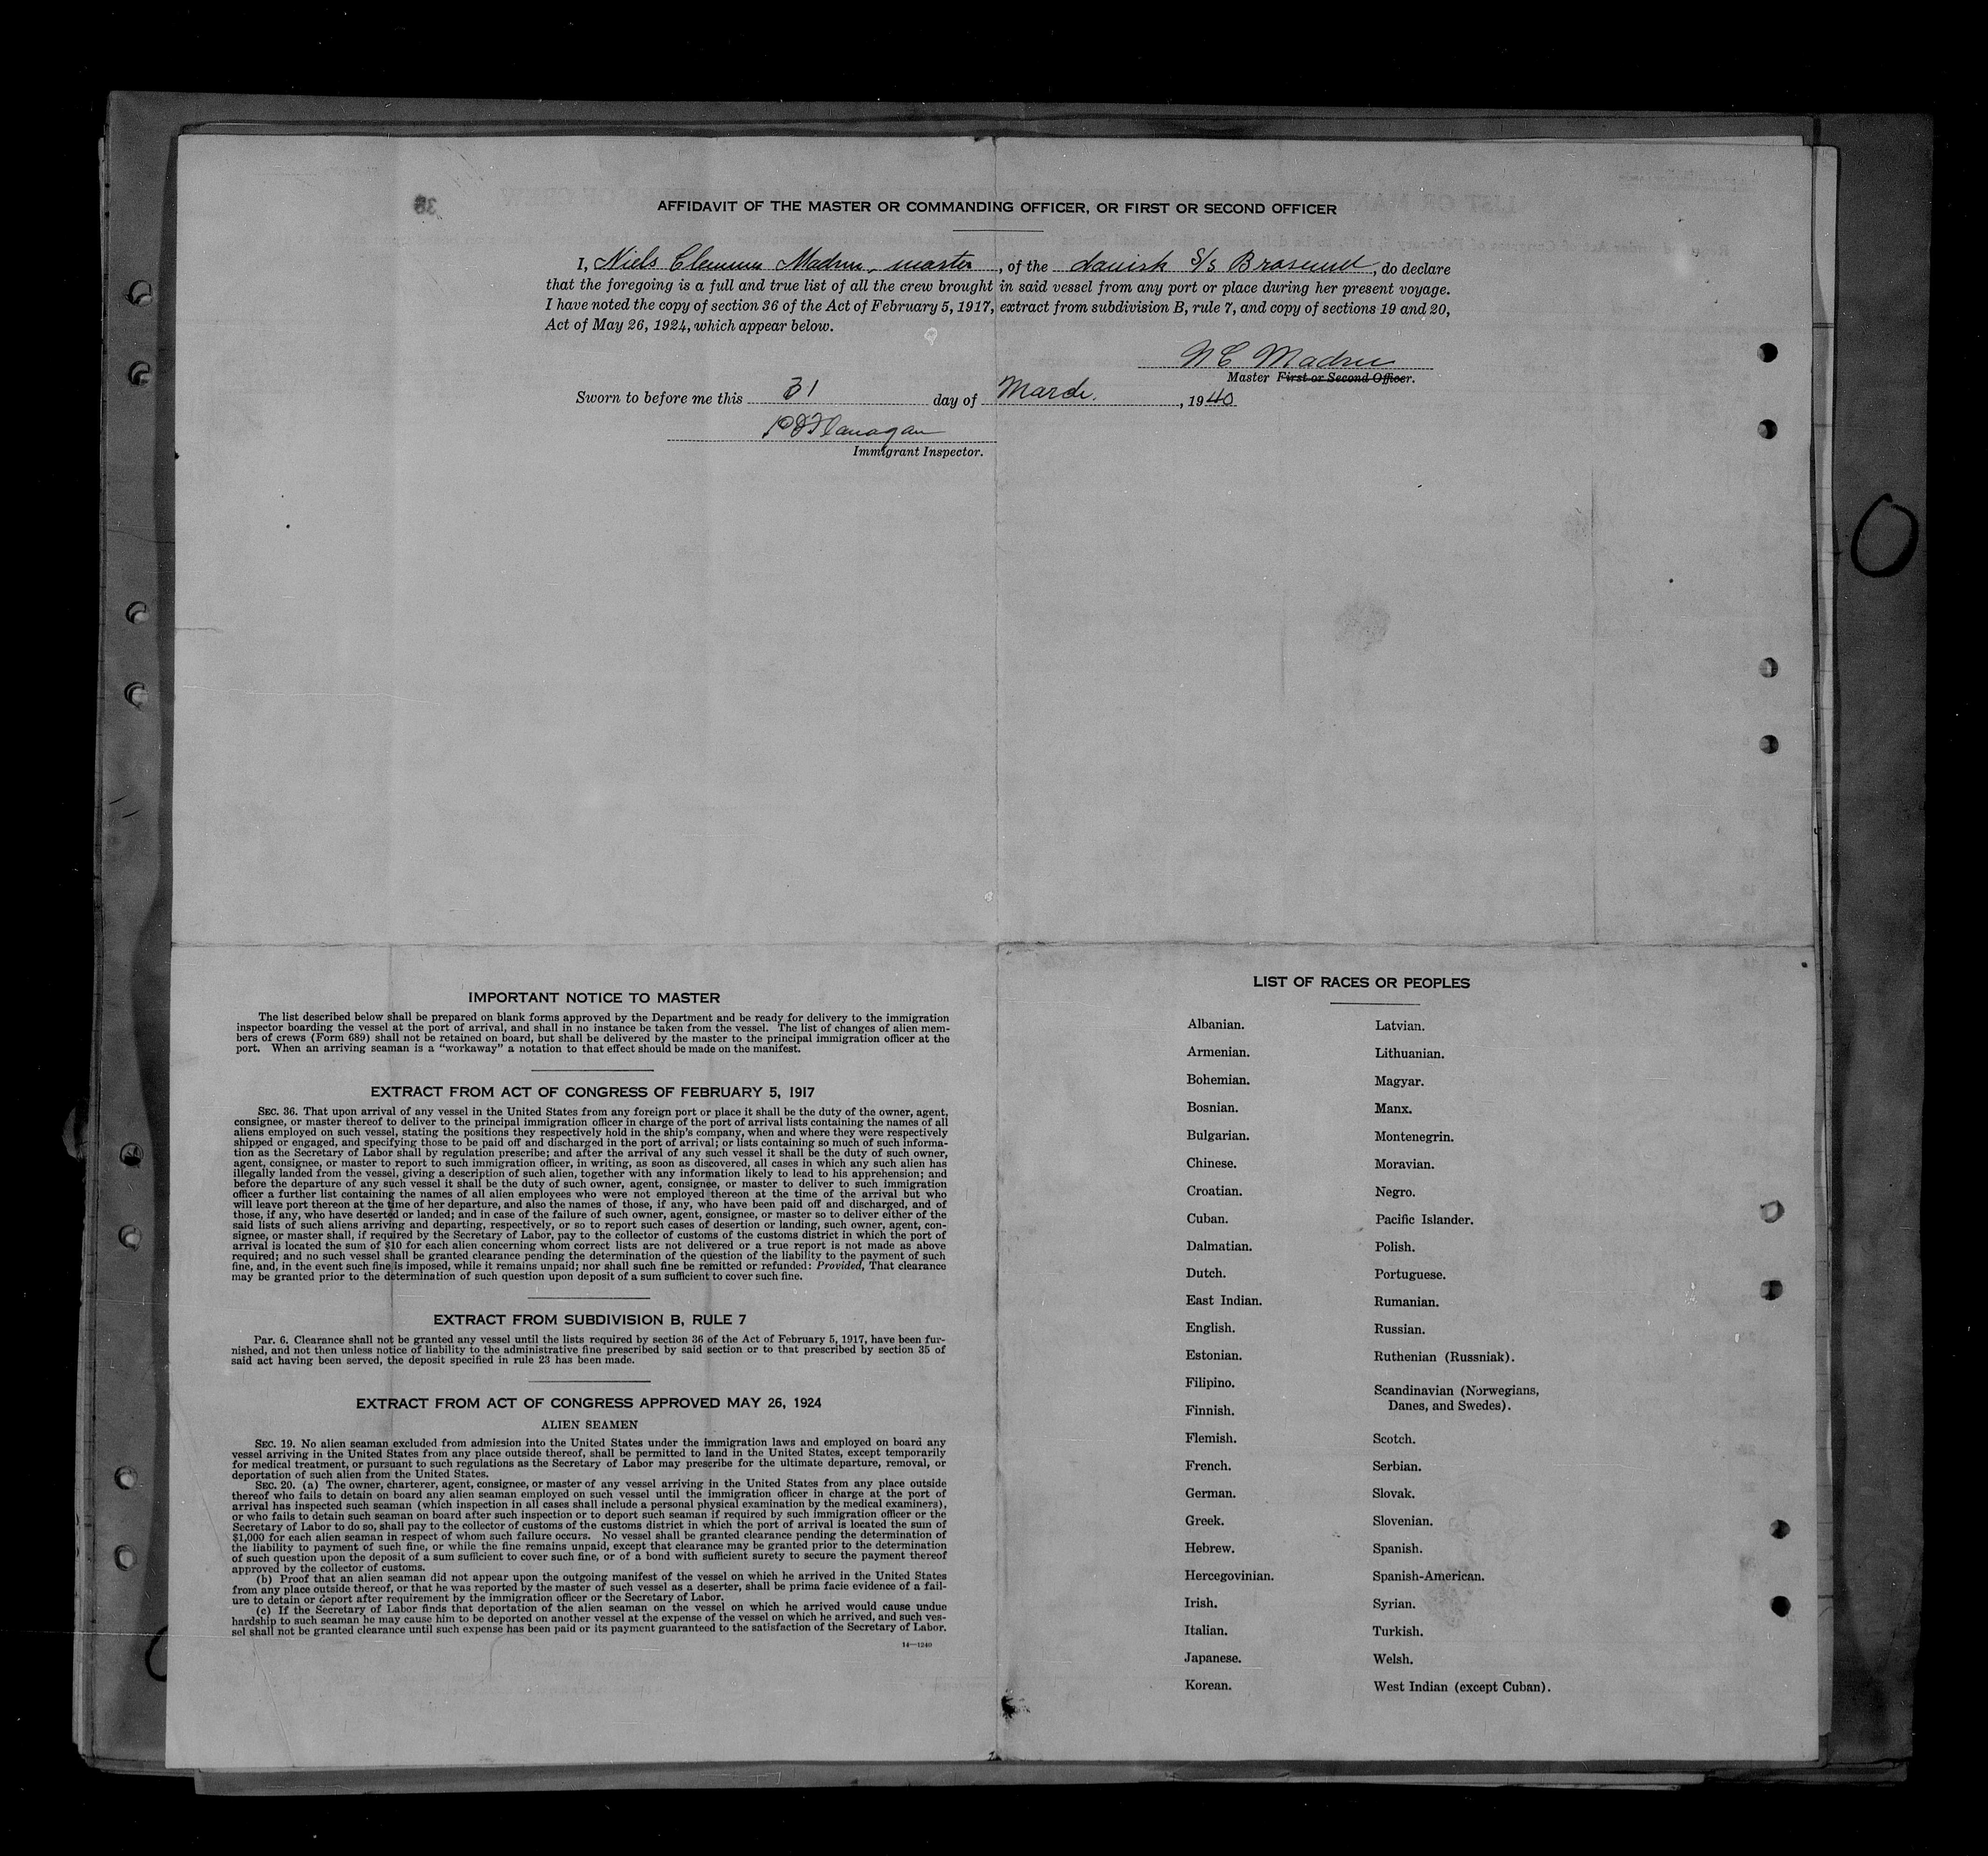 AFFIDAVIT OF THE MASTER OR COMMANDING OFFICER, OR FIRST OR SECOND OFFICER
I, Niels Clemens Madsen, master, of the danish S/S Brosund, do declare
that the foregoing is a full and true list of all the crew brought in said vessel from any port or place during her present voyage.
I have noted the copy of section 36 of the Act of February 5, 1917, extract from subdivision B, rule 7, and copy of sections 19 and 20,
Act of May 26, 1924, which appear below.
N C Madsen
Master First or Second Officer.
Sworn to before me this 31 day of March. , 1940
Flanagan
Immigrant Inspector.
IMPORTANT NOTICE TO MASTER
The list described below shall be prepared on blank forms approved by the Department and be ready for delivery to the immigration
inspector boarding the vessel at the port of arrival, and shall in no instance be taken from the vessel. The list of changes of alien mem-
bers of crews (Form 689) shall not be retained on board, but shall be delivered by the master to the principal immigration officer at the
port. When an arriving seaman is a "workaway" a notation to that effect should be made on the manifest.
EXTRACT FROM ACT OF CONGRESS OF FEBRUARY 5, 1917
SEC. 36. That upon arrival of any vessel in the United States from any foreign port or place it shall be the duty of the owner, agent,
consignee, or master thereof to deliver to the principal immigration officer in charge of the port of arrival lists containing the names of all
aliens employed on such vessel, stating the positions they respectively hold in the ship's company, when and where they were respectively
shipped or engaged, and specifying those to be paid off and discharged in the port of arrival; or lists containing so much of such informa-
tion as the Secretary of Labor shall by regulation prescribe; and after the arrival of any such vessel it shall be the duty of such owner,
agent, consignee, or master to report to such immigration officer, in writing, as soon as discovered, all cases in which any such alien has
illegally landed from the vessel, giving a description of such alien, together with any information likely to lead to his apprehension; and
before the departure of any such vessel it shall be the duty of such owner, agent, consignee, or master to deliver to such immigration
officer a further list containing the names of all alien employees who were not employed thereon at the time of the arrival but who
will leave port thereon at the time of her departure, and also the names of those, if any, who have been paid off and discharged, and of
those, if any, who have deserted or landed; and in case of the failure of such owner, agent, consignee, or master so to deliver either of the
said lists of such aliens arriving and departing, respectively, or so to report such cases of desertion or landing, such owner, agent, con-
signee, or master shall, if required by the Secretary of Labor, pay to the collector of customs of the customs district in which the port of
arrival is located the sum of $10 for each alien concerning whom correct lists are not delivered or a true report is not made as above
required; and no such vessel shall be granted clearance pending the determination of the question of the liability to the payment of such
fine, and, in the event such fine is imposed, while it remains unpaid; nor shall such fine be remitted or refunded: Provided, That clearance
may be granted prior to the determination of such question upon deposit of a sum sufficient to cover such fine.
EXTRACT FROM SUBDIVISION B, RULE 7
Par. 6. Clearance shall not be granted any vessel until the lists required by section 36 of the Act of February 5, 1917, have been fur-
nished, and not then unless notice of liability to the administrative fine prescribed by said section or to that prescribed by section 35 of
said act having been served, the deposit specified in rule 23 has been made.
EXTRACT FROM ACT OF CONGRESS APPROVED MAY 26, 1924
ALIEN SEAMEN
SEC. 19. No alien seaman excluded from admission into the United States under the immigration laws and employed on board any
vessel arriving in the United States from any place outside thereof, shall be permitted to land in the United States, except temporarily
for medical treatment, or pursuant to such regulations as the Secretary of Labor may prescribe for the ultimate departure, removal, or
deportation of such alien from the United States.
SEC. 20. (a) The owner, charterer, agent, consignee, or master of any vessel arriving in the United States from any place outside
thereof who fails to detain on board any alien seaman employed on such vessel until the immigration officer in charge at the port of
arrival has inspected such seaman (which inspection in all cases shall include a personal physical examination by the medical examiners),
or who fails to detain such seaman on board after such inspection or to deport such seaman if required by such immigration officer or the
Secretary of Labor to do so, shall pay to the collector of customs of the customs district in which the port of arrival is located the sum of
$1,000 for each alien seaman in respect of whom such failure occurs. No vessel shall be granted clearance pending the determination of
the liability to payment of such fine, or while the fine remains unpaid, except that clearance may be granted prior to the determination
of such question upon the deposit of a sum sufficient to cover such fine, or of a bond with sufficient surety to secure the payment thereof
approved by the collector of customs.
(b) Proof that an alien seaman did not appear upon the outgoing manifest of the vessel on which he arrived in the United States
from any place outside thereof, or that he was reported by the master of such vessel as a deserter, shall be prima facie evidence of a fail-
ure to detain or deport after requirement by the immigration officer or the Secretary of Labor.
(c) If the Secretary of Labor finds that deportation of the alien seaman on the vessel on which he arrived would cause undue
hardship to such seaman he may cause him to be deported on another vessel at the expense of the vessel on which he arrived, and such ves-
sel shall not be granted clearance until such expense has been paid or its payment guaranteed to the satisfaction of the Secretary of Labor.
14—1240
LIST OF RACES OR PEOPLES
Albanian.
Armenian.
Bohemian.
Bosnian.
Bulgarian.
Chinese.
Croatian.
Cuban.
Dalmatian.
Dutch.
East Indian.
English.
Estonian.
Filipino.
Finnish.
Flemish.
French.
German.
Greek.
Hebrew.
Hercegovinian.
Irish.
Italian.
Japanese.
Korean.
Latvian.
Lithuanian.
Magyar.
Manx.
Montenegrin.
Moravian.
Negro.
Pacific Islander.
Polish.
Portuguese.
Rumanian.
Russian.
Ruthenian (Russniak).
Scandinavian (Norwegians,
Danes, and Swedes).
Scotch.
Serbian.
Slovak.
Slovenian.
Spanish.
Spanish-American.
Syrian.
Turkish.
Welsh.
West Indian (except Cuban).